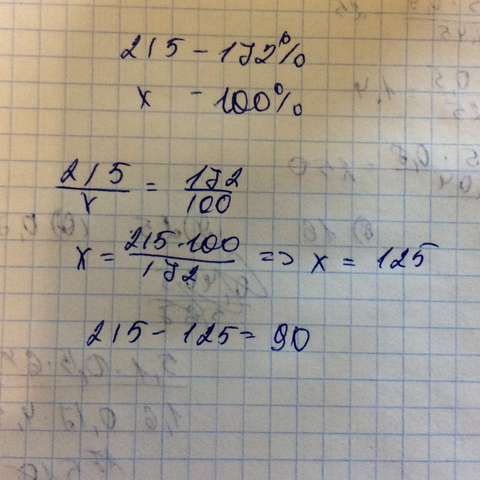 215 - 172%
x - 100%
215/x = 172/100
x = 215·100/172 => x = 125
215 - 125 = 90